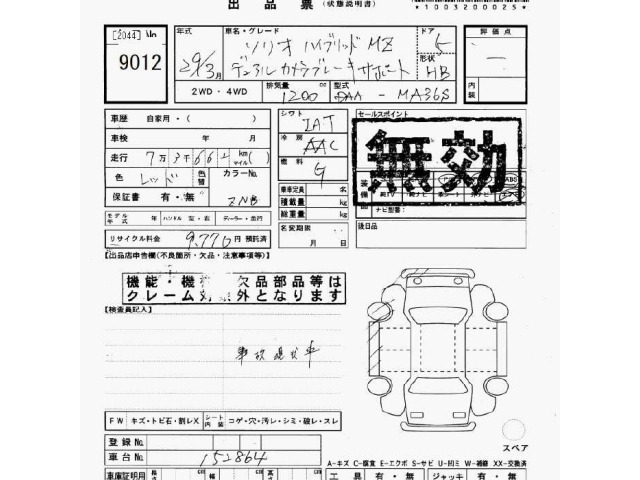 出品票 (状態説明書)
*1003200025*
[2044] No
9012
年式
29/3月
車名・グレード
ソリオ ハイブリッド MZ
デュアルカメラブレーキサポート
ドア
5
形状
HB
評価点
一
内装
2WD・4WD
排気量
1200 cc
型式
DAA - MA36S
車歴 自家用・( )
車検 年 月
走行 7万3千662 km マイル( )
色 レッド 色替
カラーNo.
ZNB
保証書 有・無
モデル年式 年 ハンドル 左・右 ディーラー・並行
リサイクル料金 9,770 円 預託済
シフト
IAT
冷房
AAC
燃料
G
乗車定員 名
積載量 kg
総重量 kg
名変期限
月 日
セールスポイント
無効
装備
ナビ型番:
後日品
【出品店申告欄(不良箇所・欠品・注意事項等)】
機能・機 欠品部品等は
クレーム対象外となります
【検査員記入】
事故現状車
FW キズ・トビ石・割レX シート内装 コゲ・穴・汚レ・シミ・破レ・スレ
登録No.
車台No. 152864
スペア
A-キズ C-腐食 E-エクボ S-サビ U-凹ミ W-補修 XX-交換済
車庫証明用 長さ cm 幅 cm 高さ cm
工具 有・無 ジャッキ 有・無